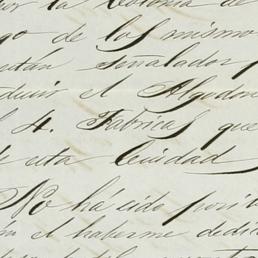 por la Colonia de
go de los mismo
estan señalados p
ducir el Algodon
l 4. Fabricas que
de esta Ciudad
No há sido posi
n el haberme dedic